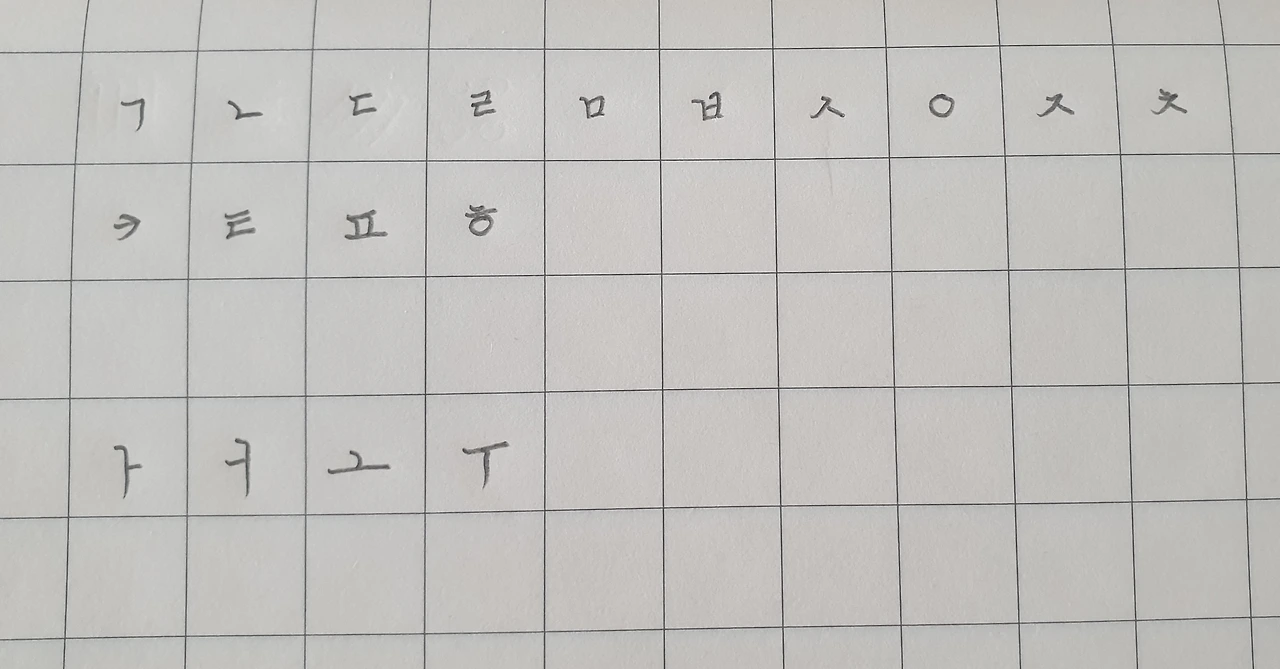 ㄱ ㄴ ㄷ ㄹ ㅁ ㅂ ㅅ ㅇ ㅈ ㅊ
ㅋ ㅌ ㅍ ㅎ
ㅏ ㅓ ㅗ ㅜ